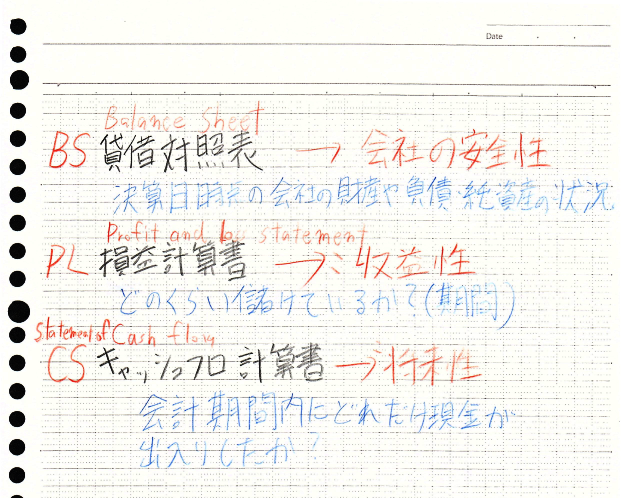 Date
Balance Sheet
BS 貸借対照表 → 会社の安全性
決算日時点の会社の財産や負債・純資産の状況
Profit and loss statement
PL 損益計算書 → 収益性
どのくらい儲けているか?(期間)
Statement of Cash flow
CS キャッシュフロ計算書 → 将来性
会計期間内にどれだけ現金が
出入りしたか?